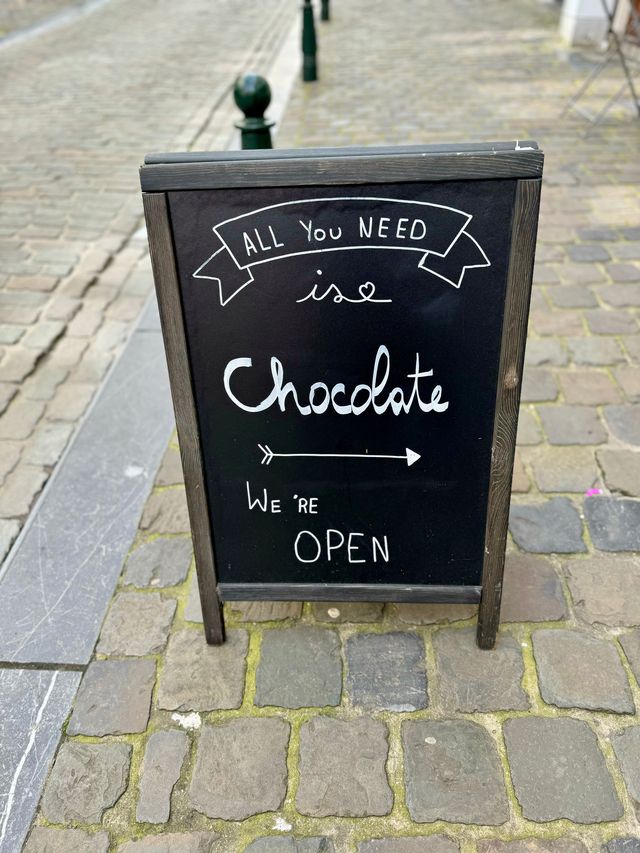 ALL You NEED
is
Chocolate
WE'RE
OPEN